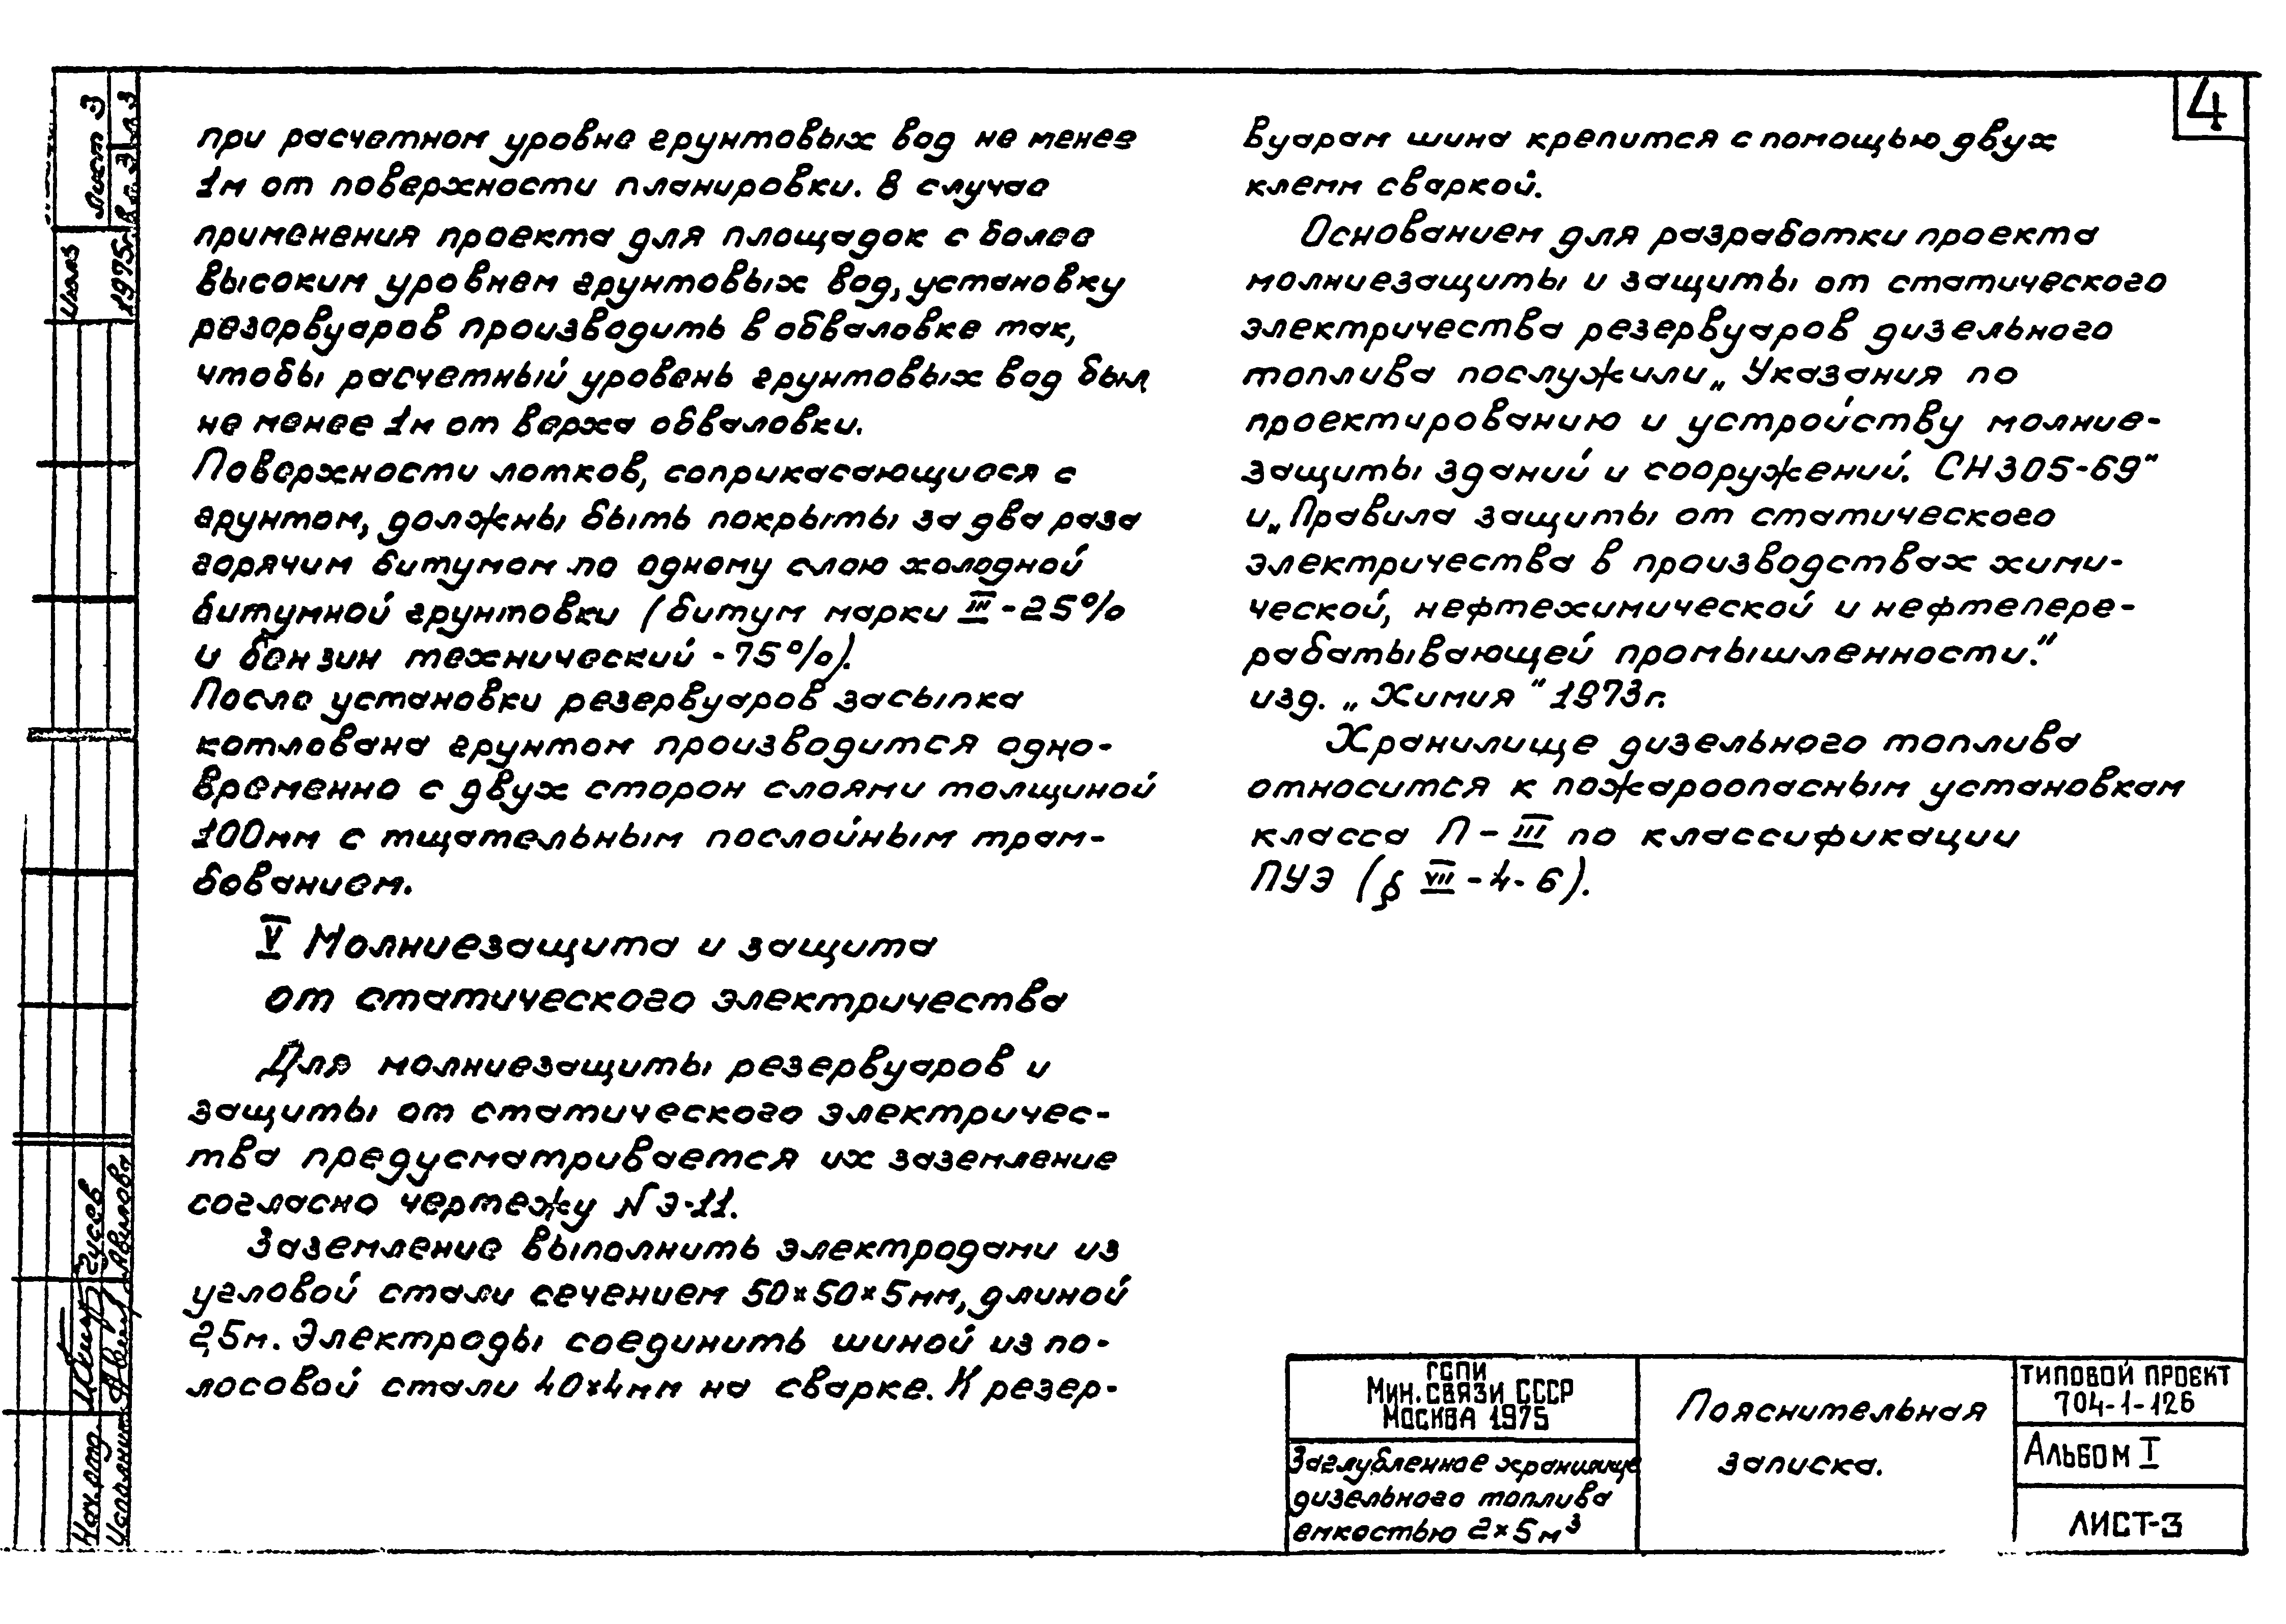 4
при расчетном уровне грунтовых вод не менее
1м от поверхности планировки. В случае
применения проекта для площадок с более
высоким уровнем грунтовых вод, установку
резервуаров производить в обваловке так,
чтобы расчетный уровень грунтовых вод был
не менее 1м от верха обваловки.
Поверхности лотков, соприкасающиеся с
грунтом, должны быть покрыты за два раза
горячим битумом по одному слою холодной
битумной грунтовки (битум марки III - 25%
и бензин технический - 75%).
После установки резервуаров засыпка
котлована грунтом производится одно-
временно с двух сторон слоями толщиной
100мм с тщательным послойным трам-
бованием.
V Молниезащита и защита
от статического электричества
Для молниезащиты резервуаров и
защиты от статического электричес-
тва предусматривается их заземление
согласно чертежу N Э-11.
Заземление выполнить электродами из
угловой стали сечением 50×50×5мм, длиной
2,5м. Электроды соединить шиной из по-
лосовой стали 40×4мм на сварке. К резер-
вуарам шина крепится с помощью двух
клемм сваркой.
Основанием для разработки проекта
молниезащиты и защиты от статического
электричества резервуаров дизельного
топлива послужили „Указания по
проектированию и устройству молние-
защиты зданий и сооружений. СН305-69"
и „Правила защиты от статического
электричества в производствах хими-
ческой, нефтехимической и нефтепере-
рабатывающей промышленности."
изд. „Химия" 1973г.
Хранилище дизельного топлива
относится к пожароопасным установкам
класса П-III по классификации
ПУЭ (§ VII-4-6).
ГСПИ
Мин. связи СССР
Москва 1975
Заглубленное хранилище
дизельного топлива
емкостью 2×5м³
Пояснительная
записка.
Типовой проект
704-1-126
Альбом I
Лист-3
Лист 3
Июль
1975г.
Нач. отд. Гусев
Исполнит. Авилова